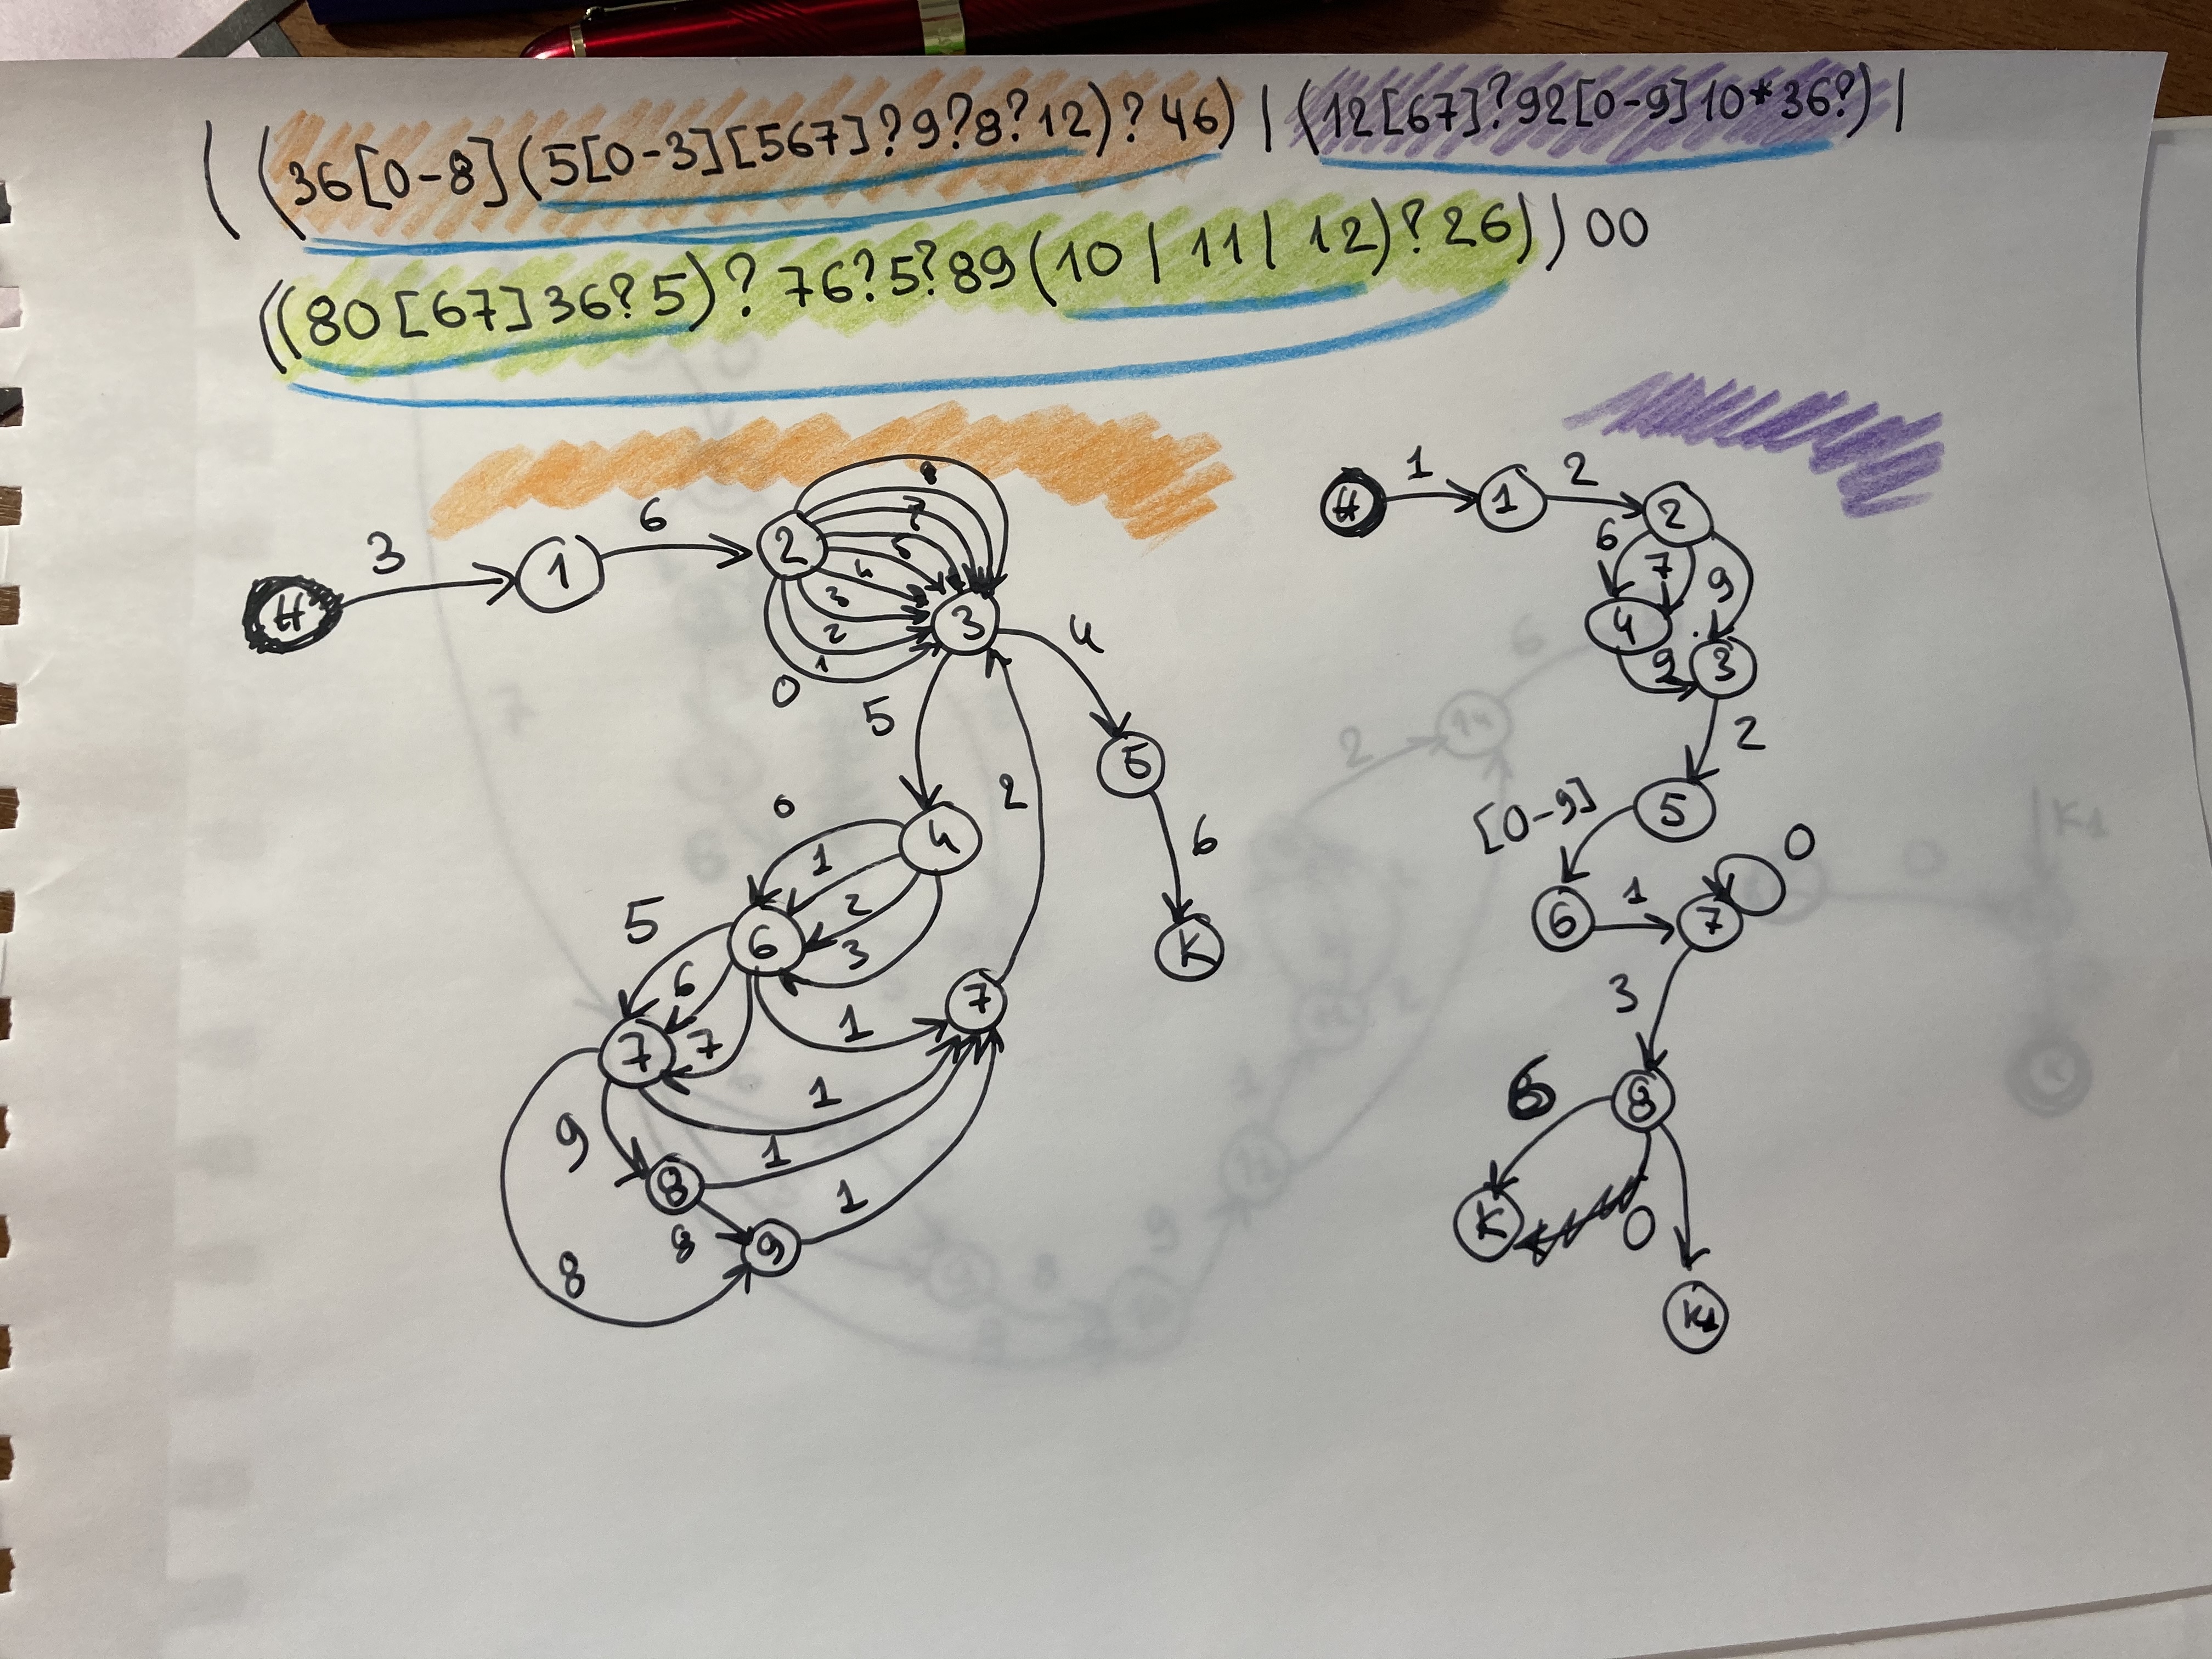 ((36[0-8](5[0-3][567]?9?8?12)?46)|(12[67]?92[0-9]10*36?)|
((80[67]36?5)?76?5?89(10|11|12)?26))00
H 3 1 6 2 8 7 5 4 3 2 1 0 3
5 4 5 6 K
4 0 1 2 3 6 2
5 6 7 7 1 7
9 1 8 1 8 9 1 8
H 1 1 2 2
6 7 9 4 9 3
2 5 [0-9]
6 1 7 0
3 8
6 K 0 K1